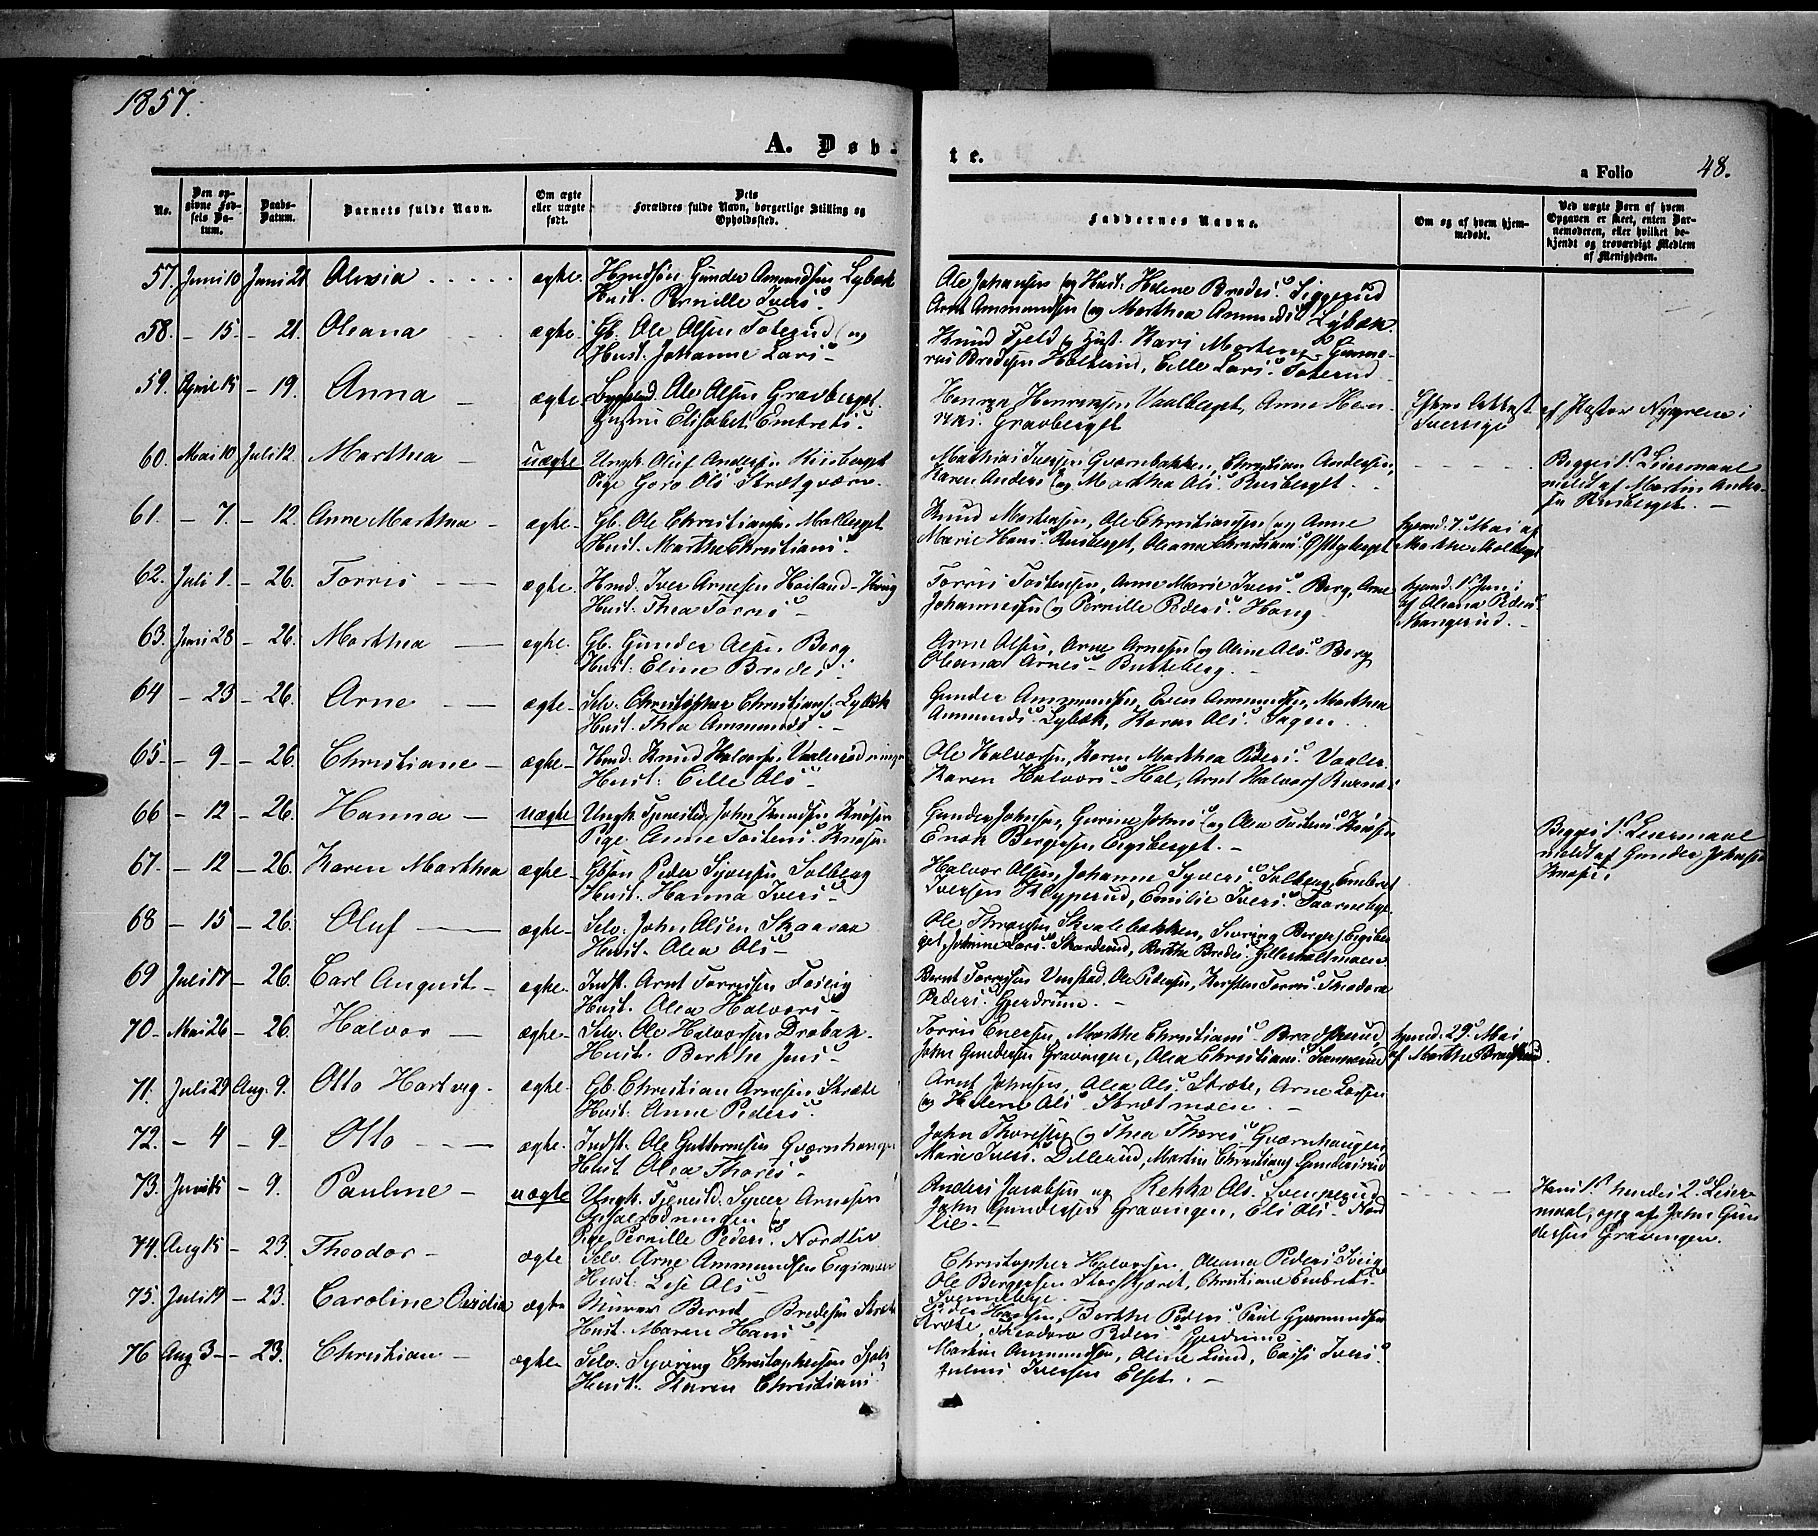 1857.
A. Døb-
te.
a Folio
48.
No.
Den op-
givne Fød-
sels Da-
tum.
Daabs-
Datum.
Barnets fulde Navn.
Om ægte
eller uægte
født.
Dets
Forældres fulde Navn, borgerlige Stilling og
Opholdssted.
Faddernes Navne.
Om og af hvem hjem-
medøbt.
Ved uægte Børn af hvem
Opgaven er skeet, enten Bar-
nemoderen, eller hvilket be-
kjendt og troværdigt Medlem
af Menigheden.
57. Juni 10 Juni 21 ægte. Gunder Amundsen Lybæk
Hust. Pernille Ivers.
Ole Johansen og Hust. Helene Bredes. Siggerud
Amundsen og Marthea Amunds. Lybæk.
58. - 15. - 21. Oleana ægte. Gb. Ole Olsen Toterud og
Hust. Johanne Lars.
Knud Fjeld og Hust. Kari Mortens.
Bredesen Eille Lars. Toterud
59. April 15 - 19. Anna - ægte. Ole Olsen Gravberget
Elisabet Embrets.
Henrik Henriksen Vaalberget, Anne Hen-
Gravberget
Efter Attest
Sverige
af Pastor Nygren i
60. Mai 10 Juli 12. Marthea - uægte Ungk. Oluf Andersen
Pige Goro Ols.
Mathias Iversen Gværnbakken, Christian Andersen,
Karen Anders. og Marthea Ols. Rusberget.
Begges 1ste Leiermaal
meldt af Martin Ander-
sen Rusberget.
61. - 7. - 12. Anne Marthea - ægte. Gb. Ole Christiansen Malberget
Hust. Marthe Christians.
Knud Mortensen, Ole Christiansen og Anne
Marie Hans. Rusberget, Oleana Christians.
hjemd. 7de Mai af
Marthe Malberget
62. Juli 1. - 26. Torris ægte. Hmd. Iver Arnesen Høiland - Haug
Hust. Thea Torris.
Torris Tostensen, Anne Marie Ivers. Berg, Arne
Johannesen og Pernille Peders. Haug
hjemd. 1ste Juni
af Oleana Peders.
Mangerud.
63. Juni 28 - 26. Marthea ægte. Gb. Gunder Olsen Berg
Hust. Eline Bredes.
Arne Olsen, Arne Arnesen og Aline Ols. Berg
Oleana Arnes. Butteberg.
64 - 23 - 26. Arne ægte. Selv. Christopher Christians. Lybæk
Hust. Thea Ammunds.
Gunder Ammundsen, Even Ammundsen, Marthea
Ammunds. Lybæk, Karen Ols. Sagen.
65 - 9 - 26. Christiane - ægte. Hmd. Knud Halvorsen Vaalerødningen
Hust. Eille Ols.
Ole Halvorsen, Karen Marthea Peders. Vaaler.
Karen Halvors. Hal, Arnt Halvors.
66 - 12 - 26. Hanna - uægte Ungk. Tjenestd. John Knudsen Knøsen
Pige Anne Tostens. Knøsen
Gunder Johnsen, Gurine Johns. og Olea Tostens. Knøsen
Enok Bergersen Eigsberget. -
Begges 1ste Leiermaal
meldt af Gunder Johnsen
Knøsen.
67. - 12 - 26. Karen Marthea ægte. Peder Syversen Solberg
Hust. Hanna Ivers.
Halvor Olsen, Johanne Syvers. Solberg, Embret
Iversen Klypperud, Emilie Ivers.
68 - 15 - 26. Oluf ægte. Selv. John Olsen Skaaraa
Hust. Olea Ols.
Ole Skulebakken, Syvring Berger
Johanne Lars. Skarderud, Berthe Bredes. Gillerholtmoen.
69 Juli 17 - 26. Carl August - ægte. Indst. Arnt Torrissen Fossey
Hust. Olea Halvors.
Bernt Torgersen Ole Pedersen, Kersten Torris. Theodora
Peders. Gjerdrum.
70. Mai 26 - 26. Halvor - ægte. Selv. Ole Halvorsen Drøbak.
Hust. Berthe Jens.
Torris Enersen, Marthe Christians.
John Gundersen Gravingen, Olea Christians.
hjemd. 29de Mai
af Marthe
71. Juli 29 Aug. 9. Otto Hartvig - ægte. Gb. Christian Arnesen Stræte
Hust. Anne Peders.
Arnt Johnsen, Olea Ols. Stræte, Arne Larsen
og Helene Ols. Strætmoen.
72. - 4 - 9 - Otto ægte. Indst. Ole Guttormsen Gværnhaugen
Hust. Olea Thores.
John Thoresen og Thea Thores. Gværnhaugen,
Marie Ivers. Dillerud, Martin Christians. Gundersrud
73. Juni 15 - 9. Pauline - uægte Ungk. Tjenestd. Syver Arnesen
Opsalrødningen og
Pige Pernille Peders. Nordlie
Anders Jacobsen og Rekka Ols. Svenperud
John Gundersen Gravingen, Eli Ols. Nord
lie. -
Hans 1ste hendes 2det Leier-
maal, opg. af John Gun
dersen Gravingen.
74. Aug 15 - 23. Theodor - ægte Selv. Arne Ammundsen Eigsmoen
Hust. Lise Ols.
Christopher Halvorsen, Oleana Peders.
Ole Bergersen Storkjæret, Christiane Embrets.
75. Juli 19 - 23. Caroline ægte Murer Bernt Bredesen Stræte
Hust. Maren Hans.
Peder Hansen, Berthe Peders. Paul Gjermundsen
Stræte, Theodora Peders. Gjerdrum
76 Aug 3 - 23. Christian - ægte Selv. Syvring Christophersen
Hust. Karen Christians.
Martin Ammundsen, Oline Lund, Ivers.
Julius Iversen Elset. -